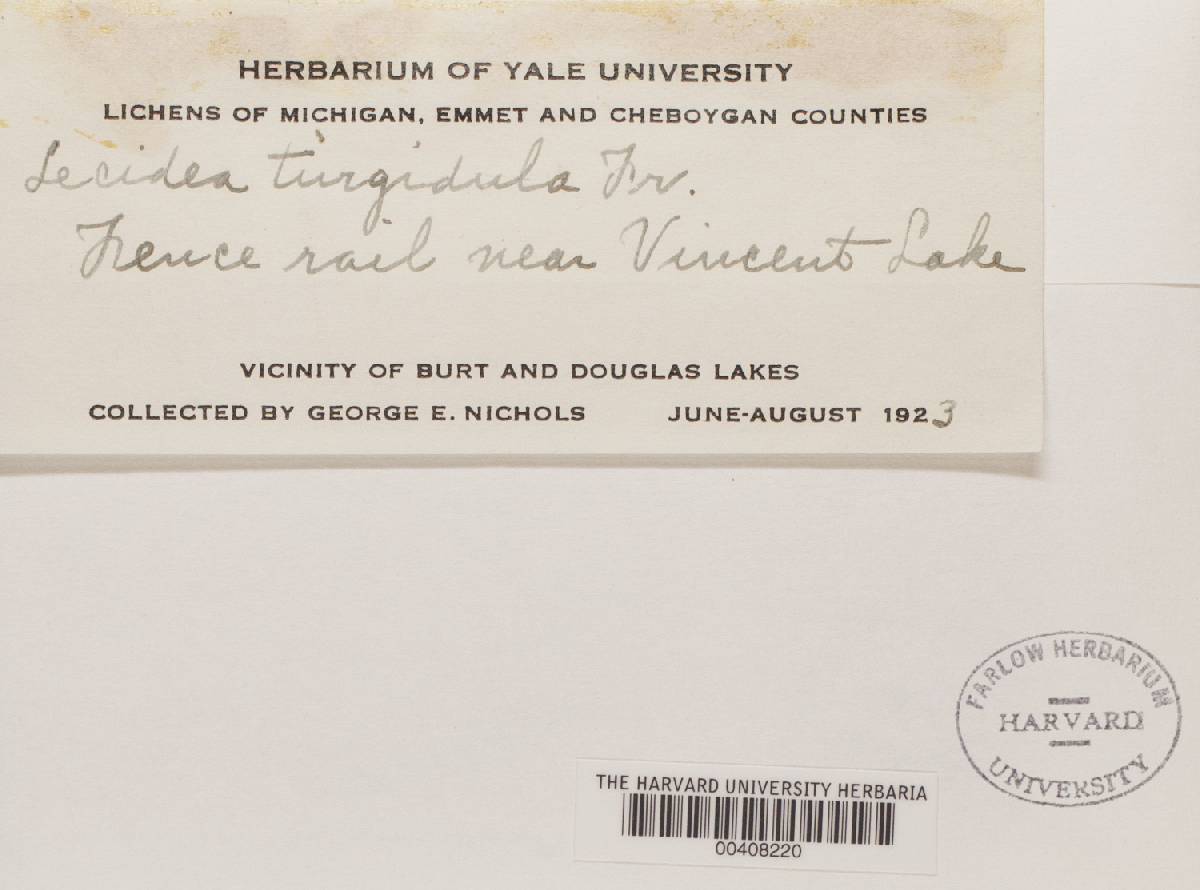 HERBARIUM OF YALE UNIVERSITY
LICHENS OF MICHIGAN, EMMET AND CHEBOYGAN COUNTIES
Lecidea turgidula Fr.
Fence rail near Vincent Lake
VICINITY OF BURT AND DOUGLAS LAKES
COLLECTED BY GEORGE E. NICHOLS JUNE-AUGUST 1923
FARLOW HERBARIUM
HARVARD
UNIVERSITY
THE HARVARD UNIVERSITY HERBARIA
00408220